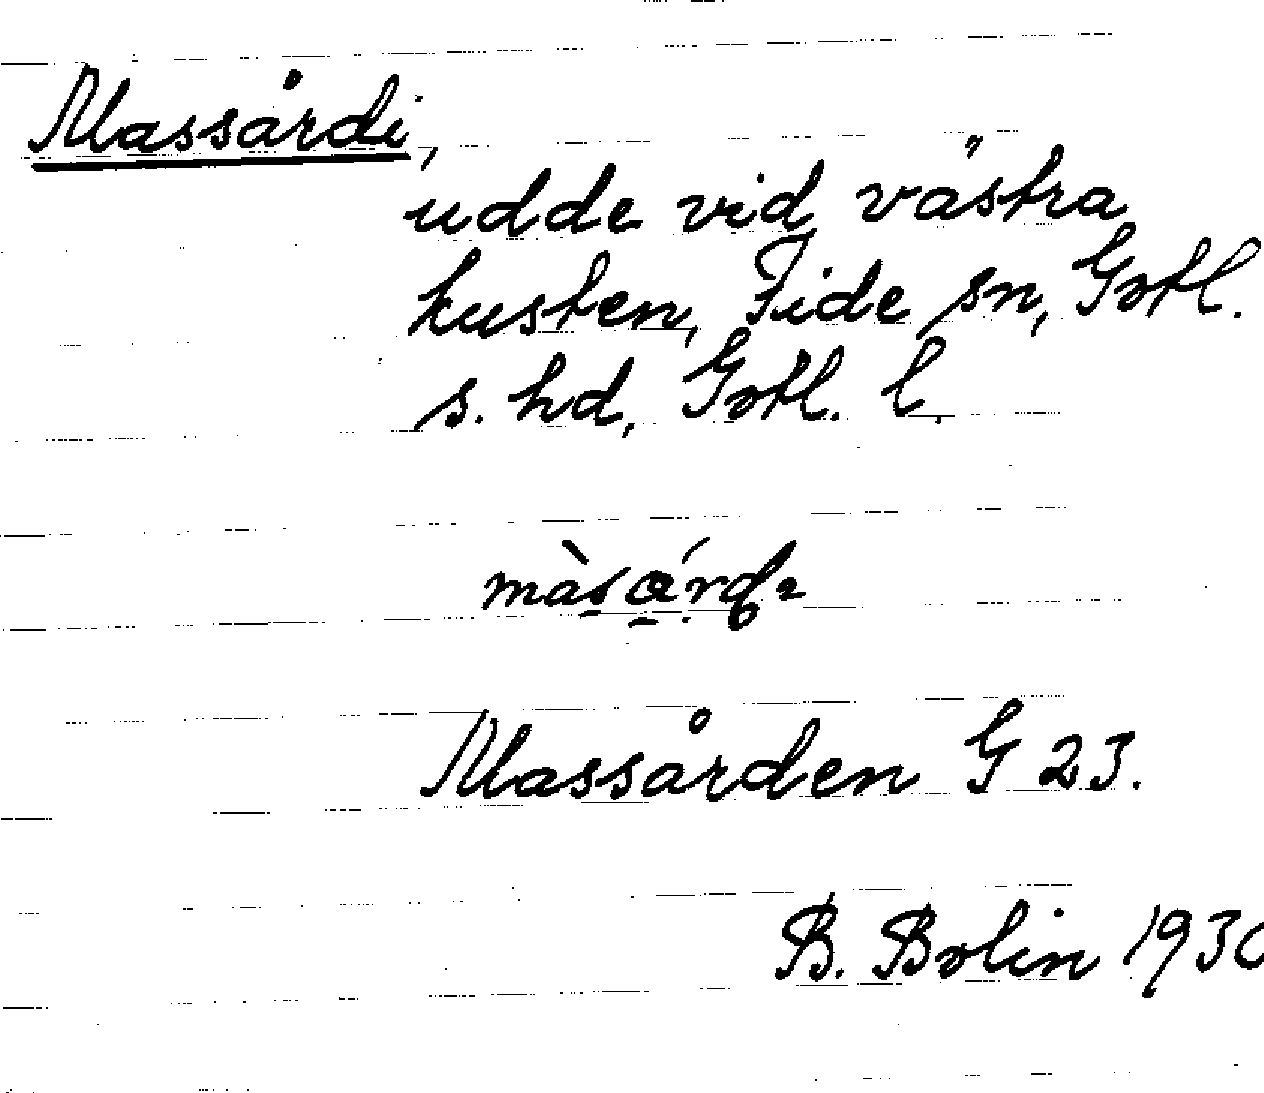 Massårdi,
udde vid västra
kusten, Fide sn, Gotl.
s. hd, Gotl. l.
Massården G 23.
B. Bolin 193